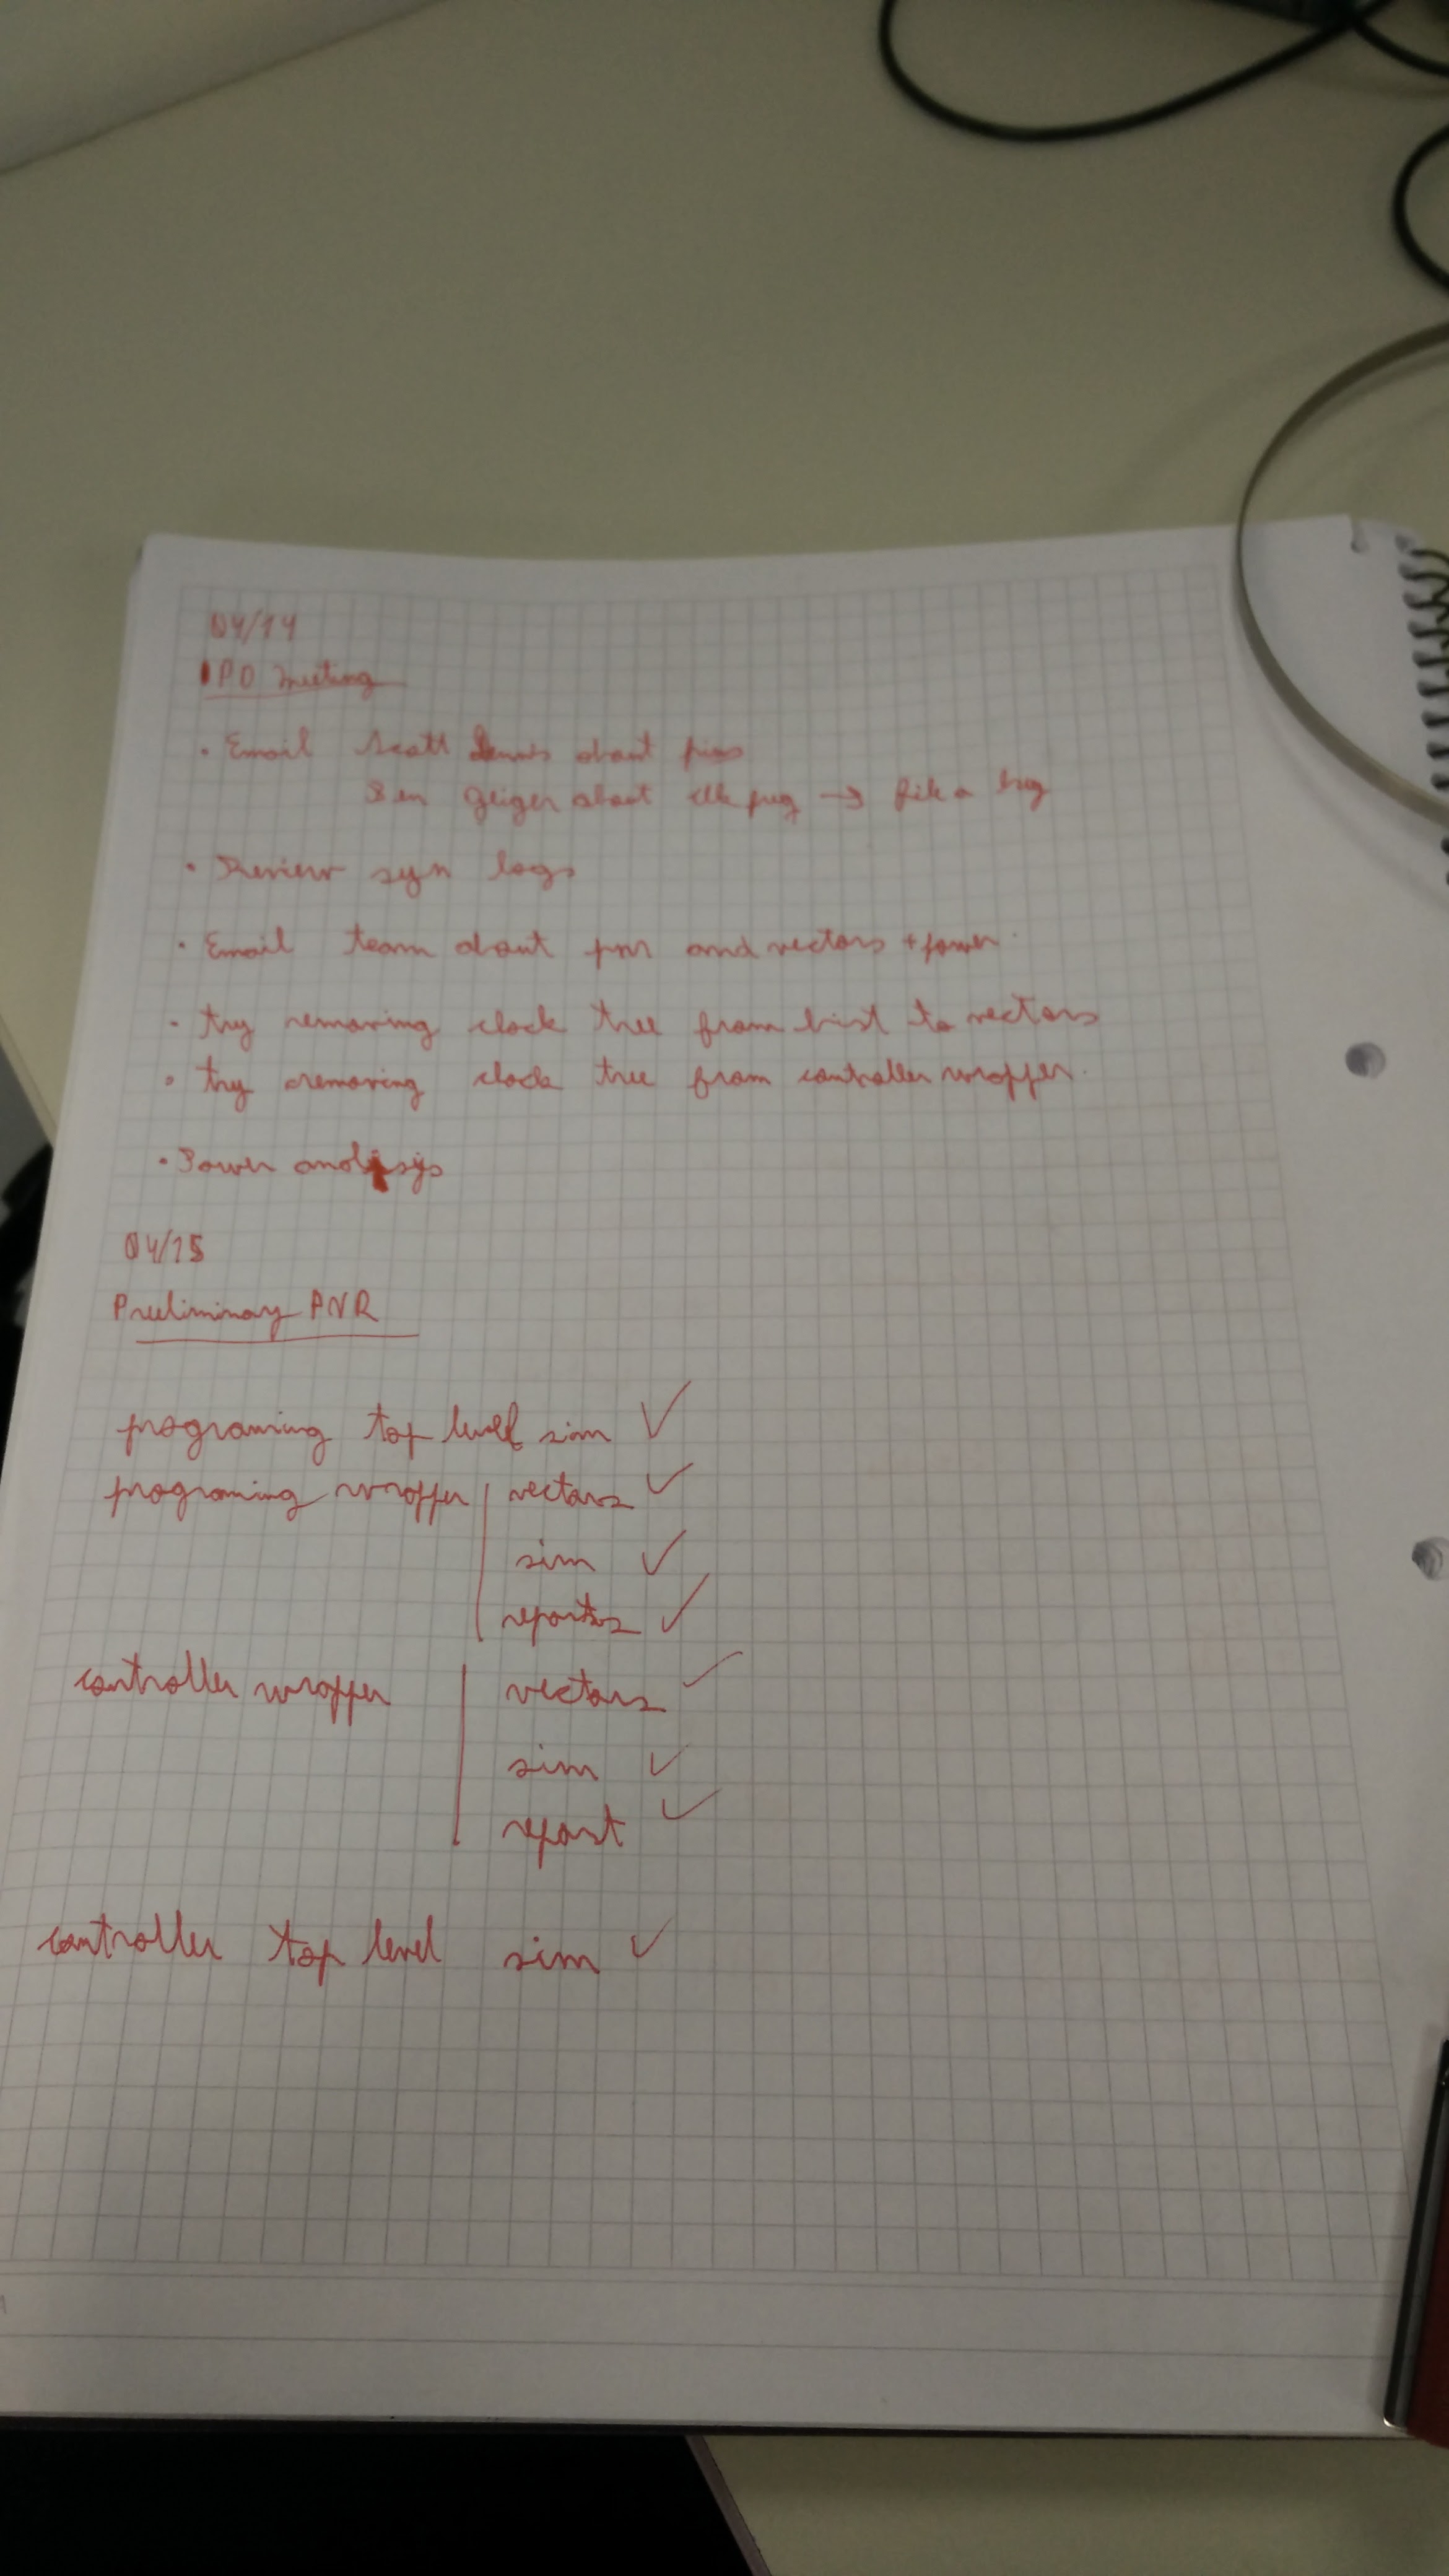 04/14
PD meeting
• Email Scott Dennis about pins
Ben Geiger about clk freq → file a bug
• Review syn logs
• Email team about pnr and vectors + power
• try removing clock tree from bist to vectors
• try removing clock tree from controller wrapper
• Power analysis
04/15
Preliminary PNR
programing top level sim ✓
programing wrapper | vectors ✓
sim ✓
reports ✓
controller wrapper | vectors ✓
sim ✓
report ✓
controller top level sim ✓